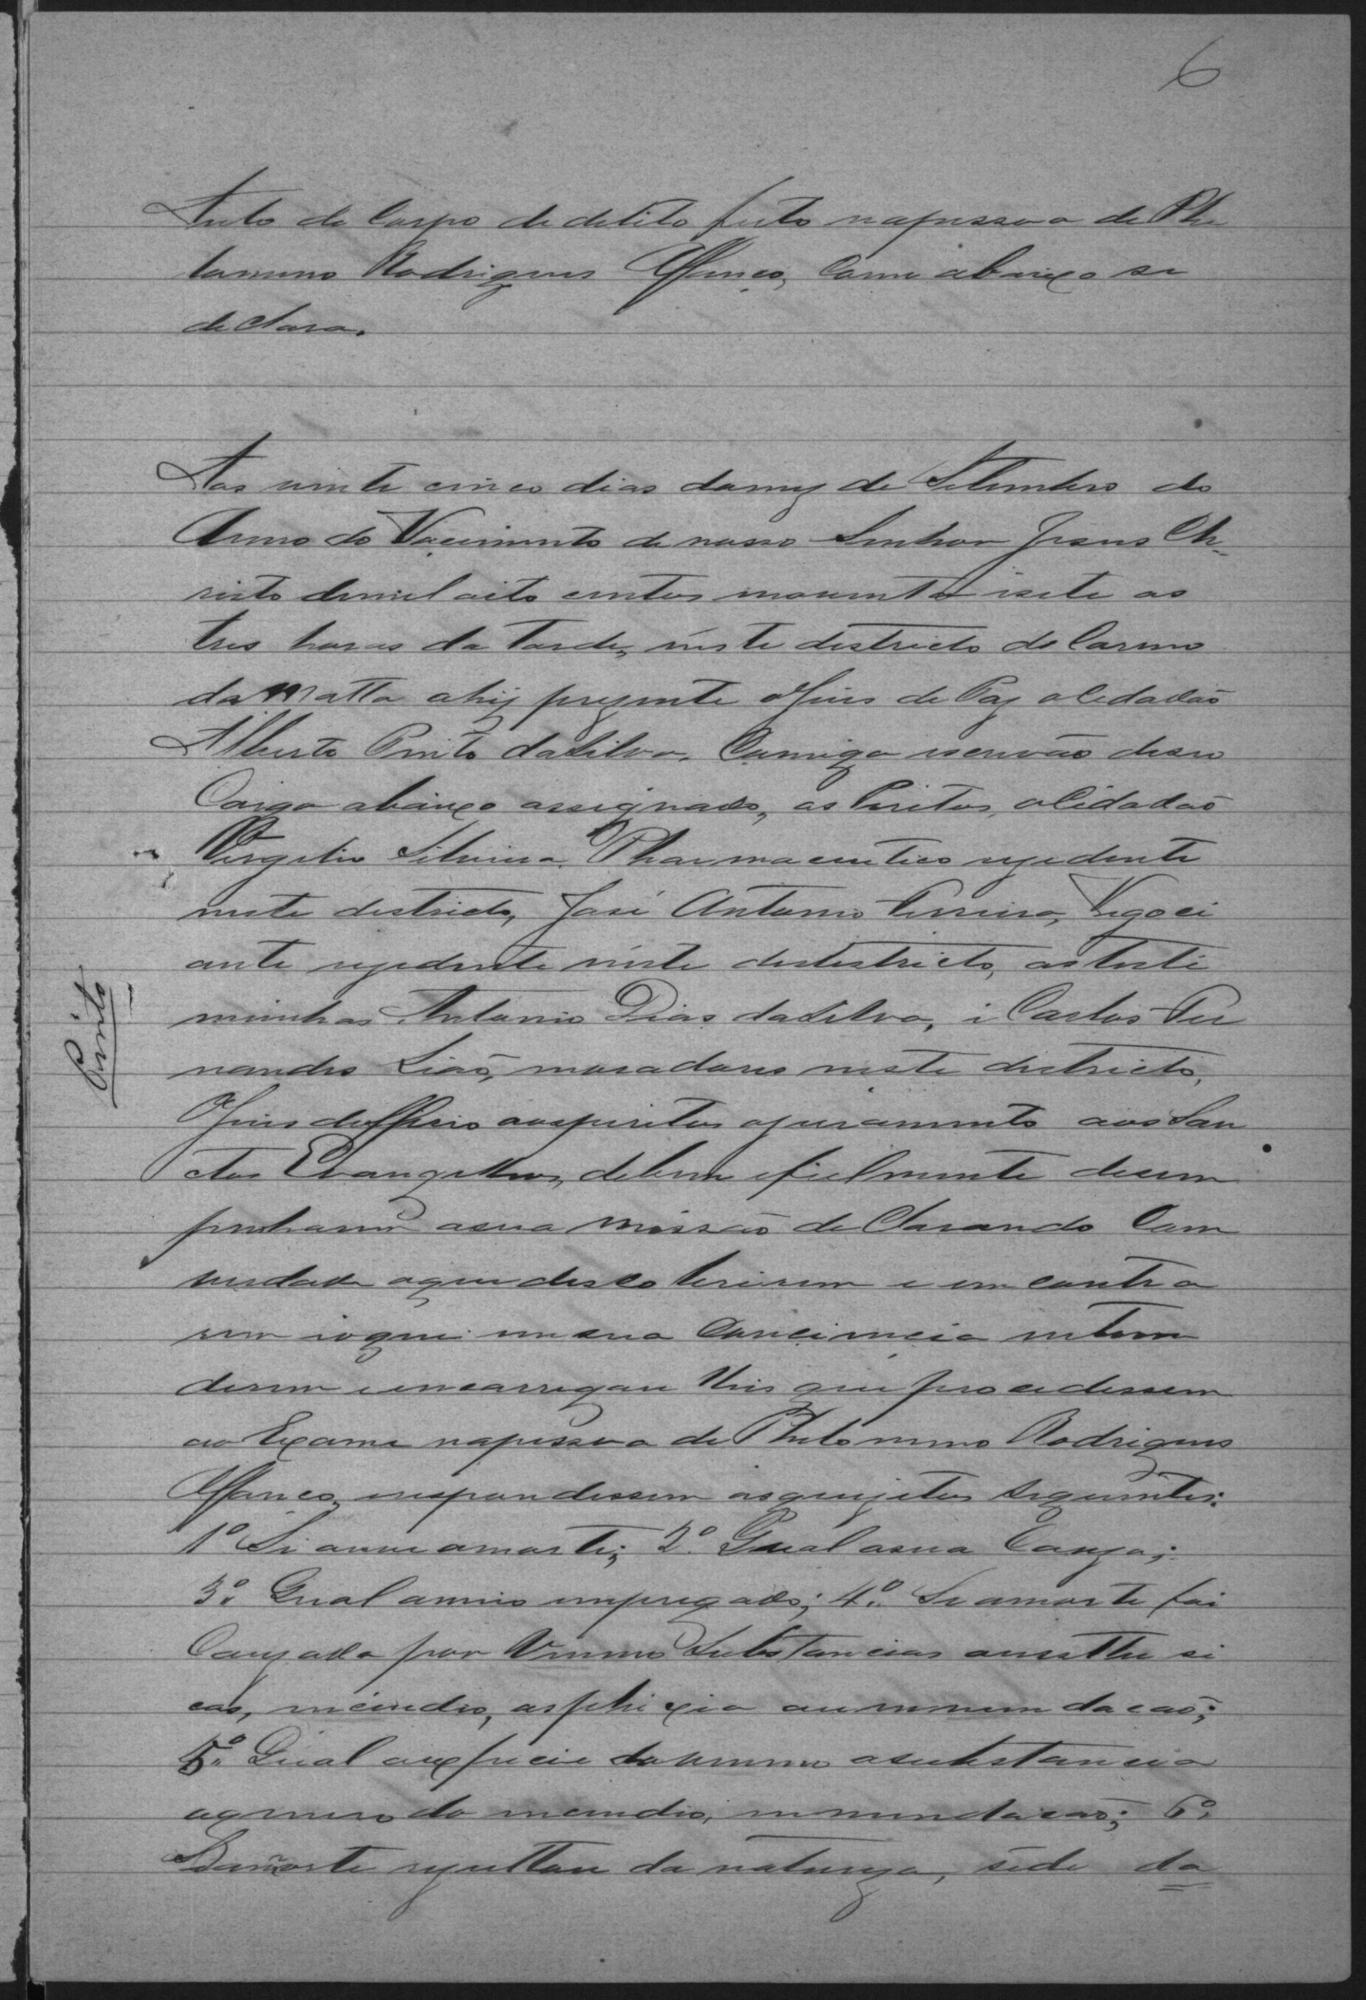 6
Auto de Corpo de delito feito napessoa de Phi
lomino Rodrigues Affonço, Como abaixo se
declara.
Aos vinte cinco dias domez de Setembro do
Anno do Nacimento de nosso Senhor Jesus Ch-
risto demil oito centos noventa isete as
tres horas da tarde, neste districto do Carmo
da Matta ahij prezente oJuis de Paz ocidadão
Alberto Pinto daSilva, Comigo escrivão deseo
Cargo abaixo assignado, os Peritos, ocidadão
Virgilio Silveira Pharmaceutico rezedente
neste districto, José Antonio Ferreira, Negoci
ante rezedente neste destestricto, as teste
munhas Antonio Dias daSilva, i Carlos Fer
nandes Leão, moradores neste districto,
OJuis deffirio aosperitos ojuramento aos San
ctos Evangelhos, debem efielmente desem
penharem asua missão declarando Com
verdade oque descobrirem e emcontra
rem ioque em sua Conciencia entem
derem eencarregou lhis que procedessem
ao Exame napessoa de Philomino Rodrigues
Affonço, erespondessem osquezitos seguintes:
1º Si ouve amorte; 2º Qual asua Cauza;
3º Qual omeio empregado; 4º Se amorte foi
Cauzada por Veneno Substancias anesthesi
cas, incendio, asphixia ou innundacão;
5º Qual aexpecie doveneno asubstancia
ogenero do incendio, innundacão; 6º
Seamorte rezultou da natureza, séde da
Pinto